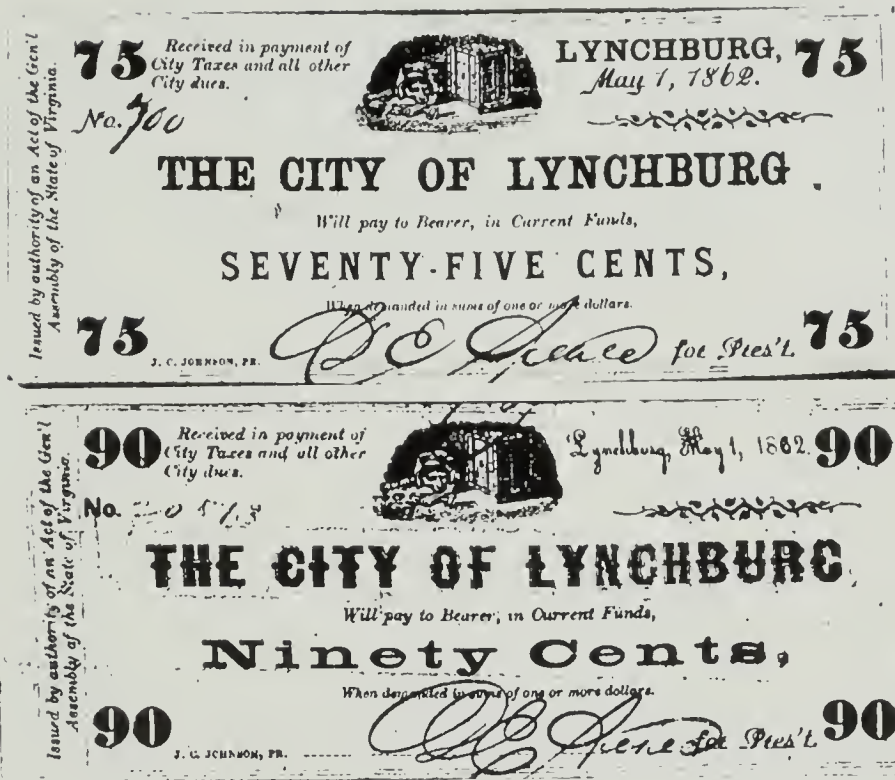 Issued by authority of an Act of the Gen'l
Assembly of the State of Virginia.
75
Received in payment of
City Taxes and all other
City dues.
LYNCHBURG,
May 1, 1862.
75
No. 700
THE CITY OF LYNCHBURG
Will pay to Bearer, in Current Funds,
SEVENTY-FIVE CENTS,
When demanded in sums of one or more dollars.
75
J. C. JOHNSON, PR.
for Pres't.
75
Issued by authority of an Act of the Gen'l
Assembly of the State of Virginia.
90
Received in payment of
City Taxes and all other
City dues.
Lynchburg, May 1, 1862.
90
No.
THE CITY OF LYNCHBURG
Will pay to Bearer, in Current Funds,
Ninety Cents,
When demanded in sums of one or more dollars.
90
J. C. JOHNSON, PR.
for Pres't.
90